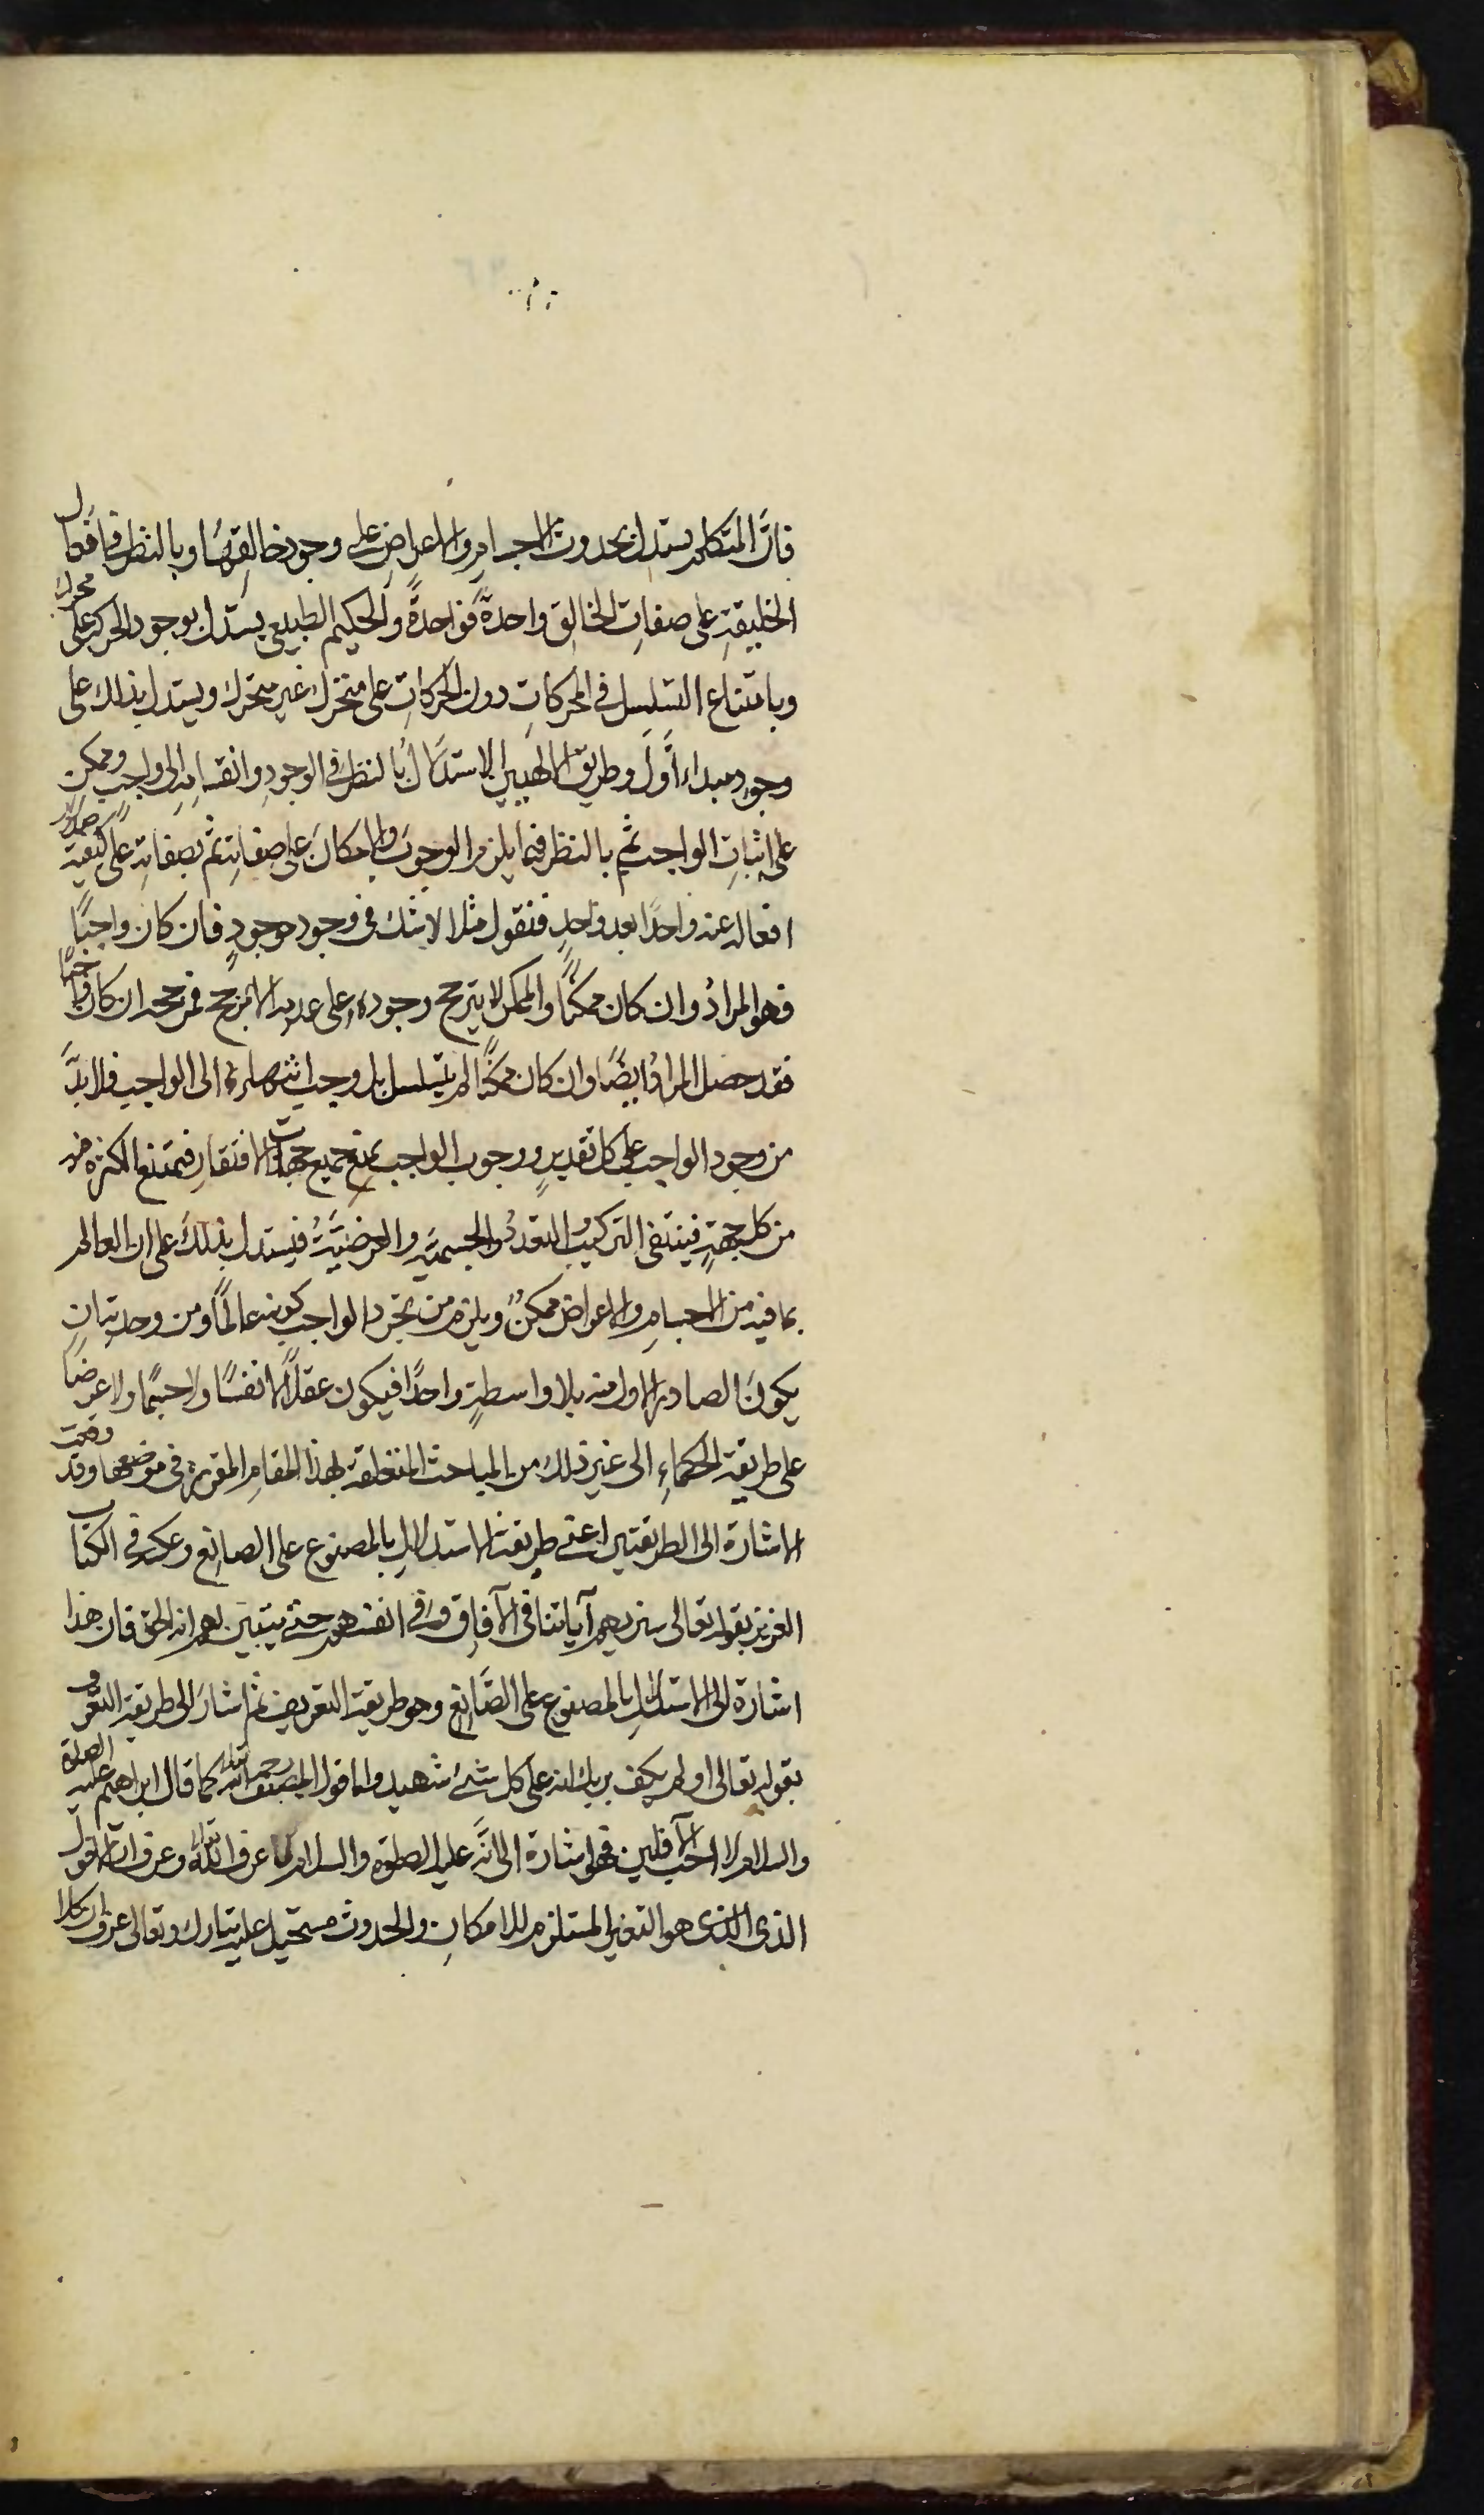 فانَّ المتكلم يستدل بحدوث الاجسامِ والاعراضِ على وجودِ خالقِهَا وبالنظر في احوال
الخليقةِ على صفاتِ الخالق واحدةً فواحدةً والحكيم الطبيعى يستدل بوجود الحركة على محرك
وبامتناع التسلسل فى المحركاتِ دون الحركاتِ على متحرك غير متحرك ويستدل بذلك على
وجودِ مبداء اَوَّلَ وطريق الالهيين الاستدلالُ بالنظر فى الوجودِ وانقسامِهِ الى واجبٍ وممكنٍ
على اِثباتِ الواجب ثم بالنظر فيما يلزم الوجوبَ والامكانَ على صفاتِهِ ثم بصفاتِهِ على كيفيّة صدور
افعاله عنه واحدًا بعد واحدٍ فنقول مثلا لا شك فى وجود موجودٍ فان كان واجبًا
فهو المرادُ وان كان ممكنًا والممكن لا يترجح وجودهُ على عدمه الا بمرجح فمرجحه ان كان واجبًا
فقد حصل المرادُ ايضًا وان كان ممكنًا لم يتسلسل بل وجب انتهاءه الى الواجب فلابدَّ
من وجود الواجب على كل تقديرٍ ووجوب الواجب يمنع جميع جهات الافتقارِ فيمتنع الكثرة فيه
من كل جهةٍ فينتفى التركيب والتعددُ والجسميّة والعرضيَّةُ فيستدل بذلكَ على ان العالم
بما فيه من الاجسامِ والاعراض ممكنٌ ويلزم من تجرد الواجب كونه عالمًا ومن وحدته ان
يكونَ الصادر الاول منه بلا واسطةٍ واحدًا فيكون عقلًا لا نفسًا ولا جسمًا ولا عرضًا
على طريقة الحكماءِ الى غير ذلك من المباحث المتعلقة بهذا المقامِ المقررة فى موضعها وقد وقعت
الاشارة الى الطريقتين اعنى طريقة الاستدلالِ بالمصنوع على الصانع وعكسه فى الكتاب
العزيز بقوله تعالى سنريهم آياتنا فى الآفاق وفى انفسهم حتى يتبين لهم انه الحق فان هذا
اشارة الى الاستدلالِ بالمصنوع على الصَّانِع وهو طريقة التعريف ثم اشارَ الى طريقة التعرُّف
بقوله تعالى اولم يكف بربك انه على كل شئ شهيد واما قول المصنف رحمه الله تعالى كما قال ابراهيم عليه الصلاة
والسلام لا احب الآفلين فهو اشارة الى انَّه عليه الصلوة والسلام لما عرف الله تعالى وعرف ان الافول
الذى الذى هو التغير المستلزم للامكانِ والحدوث مستحيل عليه تبارك وتعالى عرف ان كلا